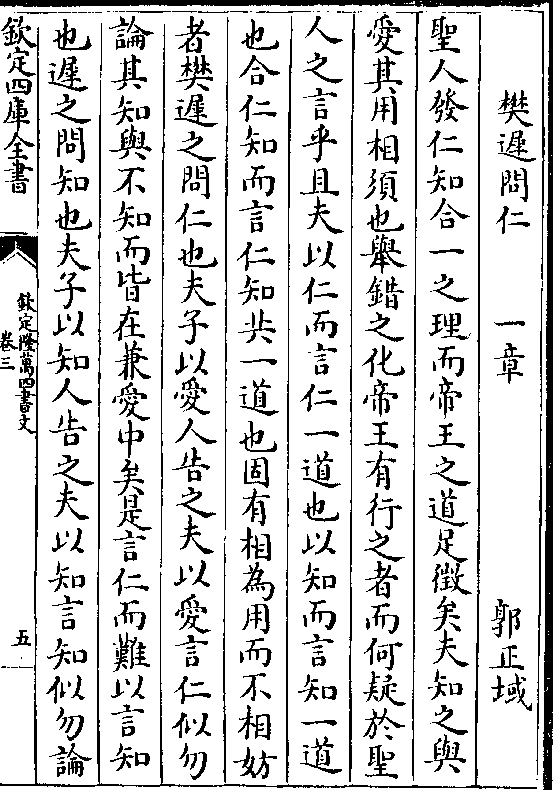 樊遲問仁 一章 郭正域
聖人發仁知合一之理而帝王之道足徴矣夫知之與
愛其用相須也舉錯之化帝王有行之者而何疑於聖
人之言乎且夫以仁而言仁一道也以知而言知一道
也合仁知而言仁知共一道也固有相為用而不相妨
者樊遲之問仁也夫子以愛人告之夫以愛言仁似勿
論其知與不知而皆在兼愛中矣是言仁而難以言知
也遲之問知也夫子以知人告之夫以知言知似勿論
欽定四庫全書
欽定隆萬四書文
卷三
五